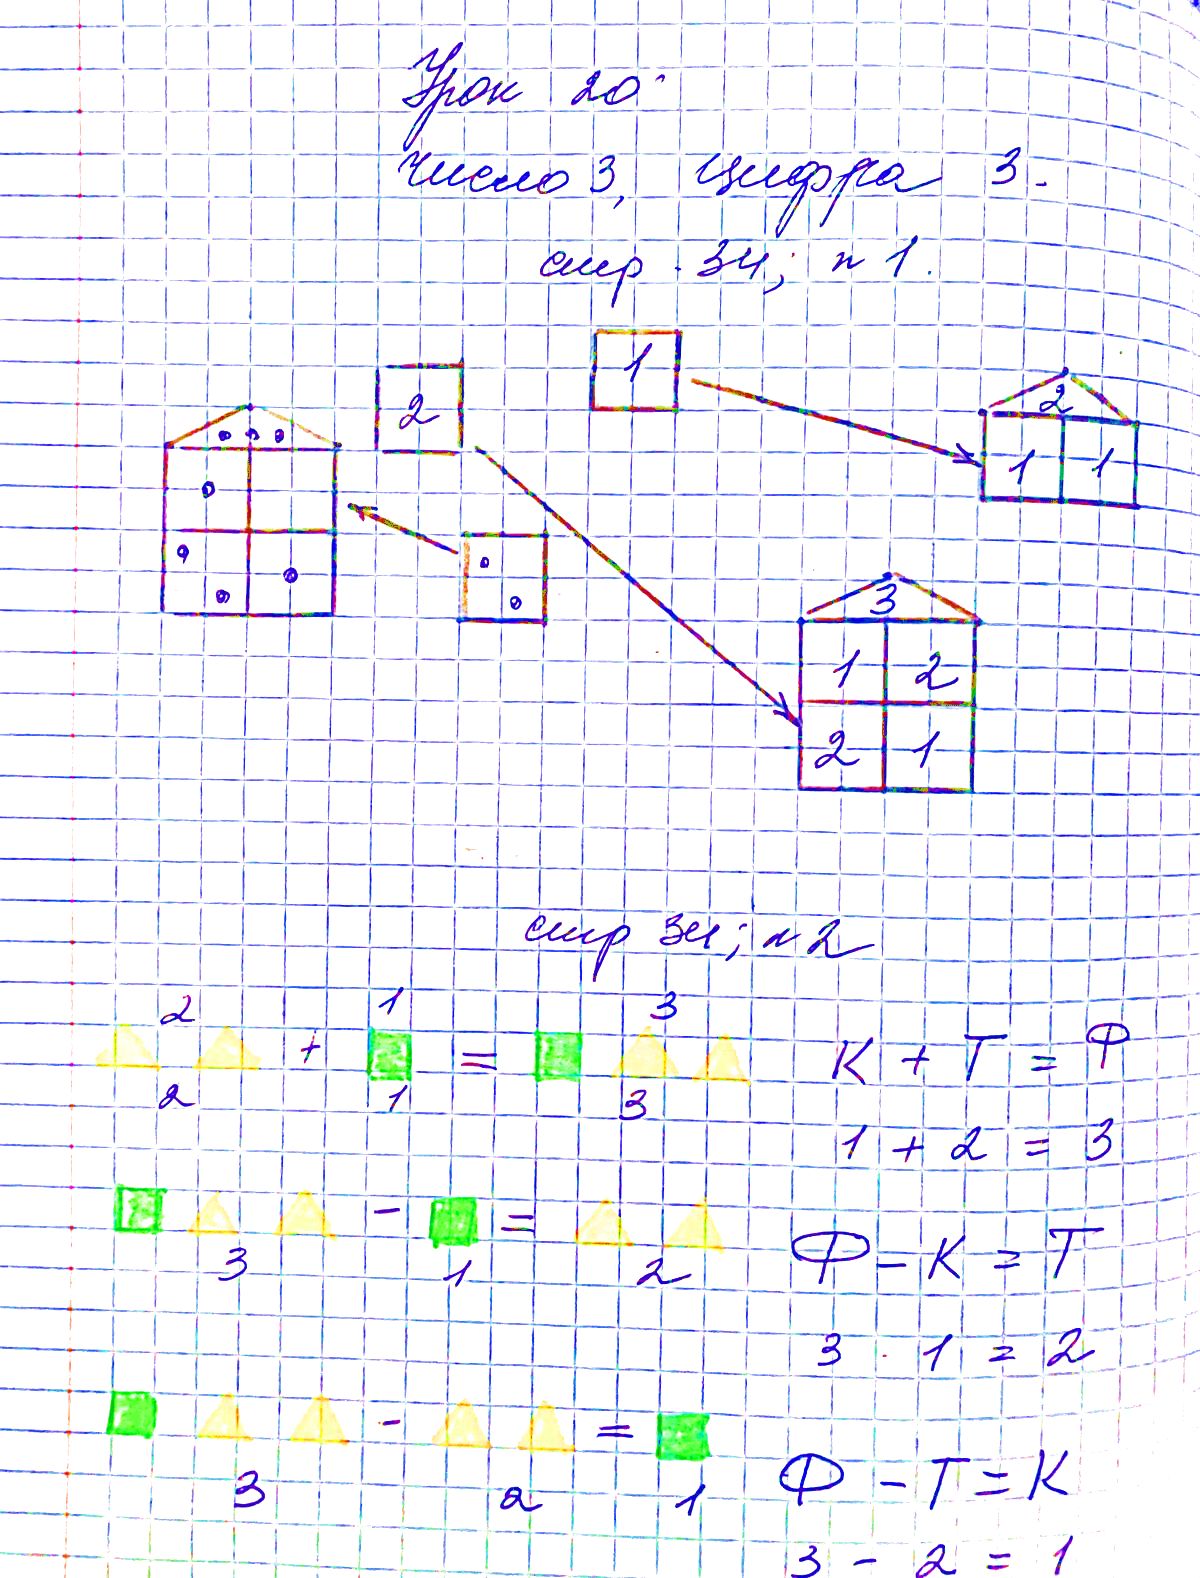 Урок 20.
Число 3, Цифра 3.
стр. 34; № 1.
2
1
2
1 1
3
1 2
2 1
стр 34; № 2
2 1 3
+ =
2 1 3
К + Т = Ф
1 + 2 = 3
- =
3 1 2
Ф - К = Т
3 - 1 = 2
- =
3 2 1
Ф - Т = К
3 - 2 = 1